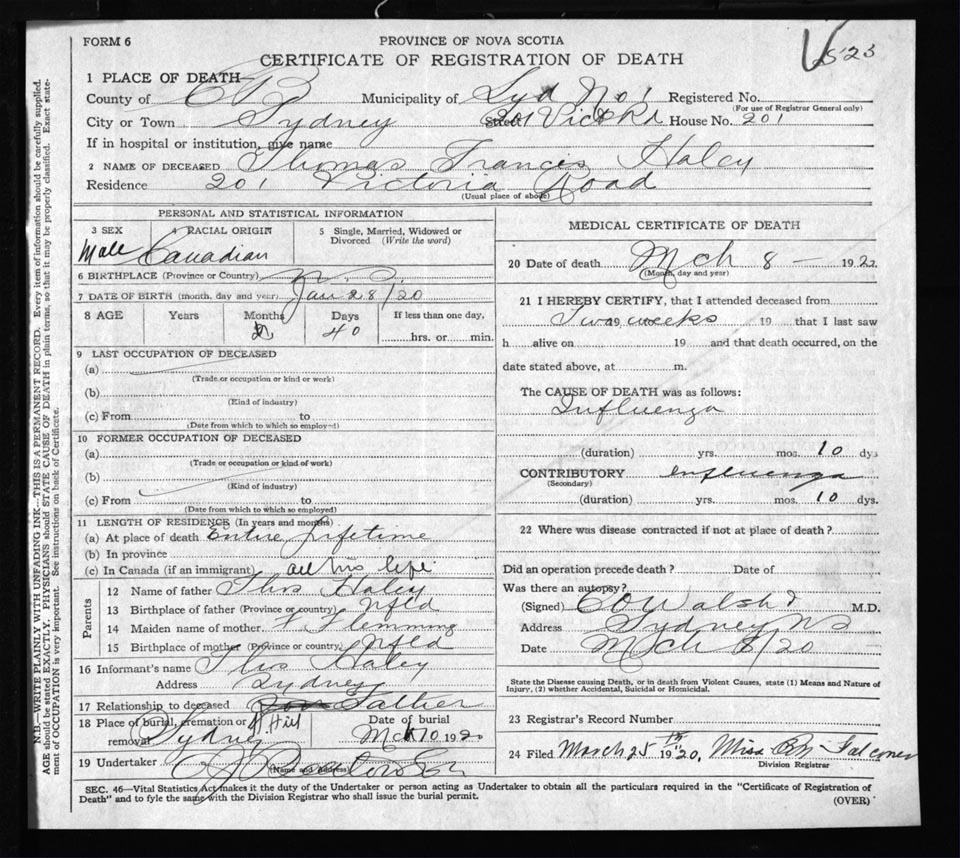 FORM 6
PROVINCE OF NOVA SCOTIA
CERTIFICATE OF REGISTRATION OF DEATH
1 PLACE OF DEATH
County of C B Municipality of Syd No 1 Registered No.
(For use of Registrar General only)
City or Town Sydney Street 201 Vict Rd House No. 201
If in hospital or institution, give name
2 NAME OF DECEASED Thomas Francis Haley
Residence 201 Victoria Road
(Usual place of abode)
PERSONAL AND STATISTICAL INFORMATION
3 SEX 4 RACIAL ORIGIN 5 Single, Married, Widowed or Divorced (Write the word)
Male Canadian
6 BIRTHPLACE (Province or Country)
7 DATE OF BIRTH (month, day and year) Jan 28/20
8 AGE Years Months Days If less than one day,
40 hrs. or min.
9 LAST OCCUPATION OF DECEASED
(a)
(Trade or occupation or kind or work)
(b)
(Kind of industry)
(c) From to
(Date from which to which so employed)
10 FORMER OCCUPATION OF DECEASED
(a)
(Trade or occupation or kind of work)
(b)
(Kind of industry)
(c) From to
(Date from which to which so employed)
11 LENGTH OF RESIDENCE (In years and months)
(a) At place of death Entire Lifetime
(b) In province
(c) In Canada (if an immigrant) all his life
Parents
12 Name of father Thos Haley
13 Birthplace of father (Province or country) Nfld
14 Maiden name of mother F Flemming
15 Birthplace of mother (Province or country) Nfld
16 Informant's name Thos Haley
Address Sydney
17 Relationship to deceased Father
18 Place of burial, cremation or removal Sydney Date of burial Mch 10 1920
19 Undertaker
(Name and address)
MEDICAL CERTIFICATE OF DEATH
20 Date of death Mch 8 — 192
(Month, day and year)
21 I HEREBY CERTIFY, that I attended deceased from
Two weeks 19 19 that I last saw
h alive on 19 and that death occurred, on the
date stated above, at m.
The CAUSE OF DEATH was as follows:
Influenza
(duration) yrs. mos. 10 dys
CONTRIBUTORY Influenza
(Secondary)
(duration) yrs. mos. 10 dys.
22 Where was disease contracted if not at place of death?
Did an operation precede death? Date of
Was there an autopsy?
(Signed) Walsh M.D.
Address Sydney NS
Date Mch 8/20
State the Disease causing Death, or in death from Violent Causes, state (1) Means and Nature of
Injury, (2) whether Accidental, Suicidal or Homicidal.
23 Registrar's Record Number
24 Filed March 25 1920, Miss Falconer
Division Registrar
SEC. 46—Vital Statistics Act makes it the duty of the Undertaker or person acting as Undertaker to obtain all the particulars required in the "Certificate of Registration of
Death" and to fyle the same with the Division Registrar who shall issue the burial permit.
(OVER)
N.B.—WRITE PLAINLY WITH UNFADING INK—THIS IS A PERMANENT RECORD. Every item of information should be carefully supplied.
AGE should be stated EXACTLY. PHYSICIANS should STATE CAUSE OF DEATH in plain terms, so that it may be properly classified. Exact state-
ment of OCCUPATION is very important. See instructions on back of Certificate.